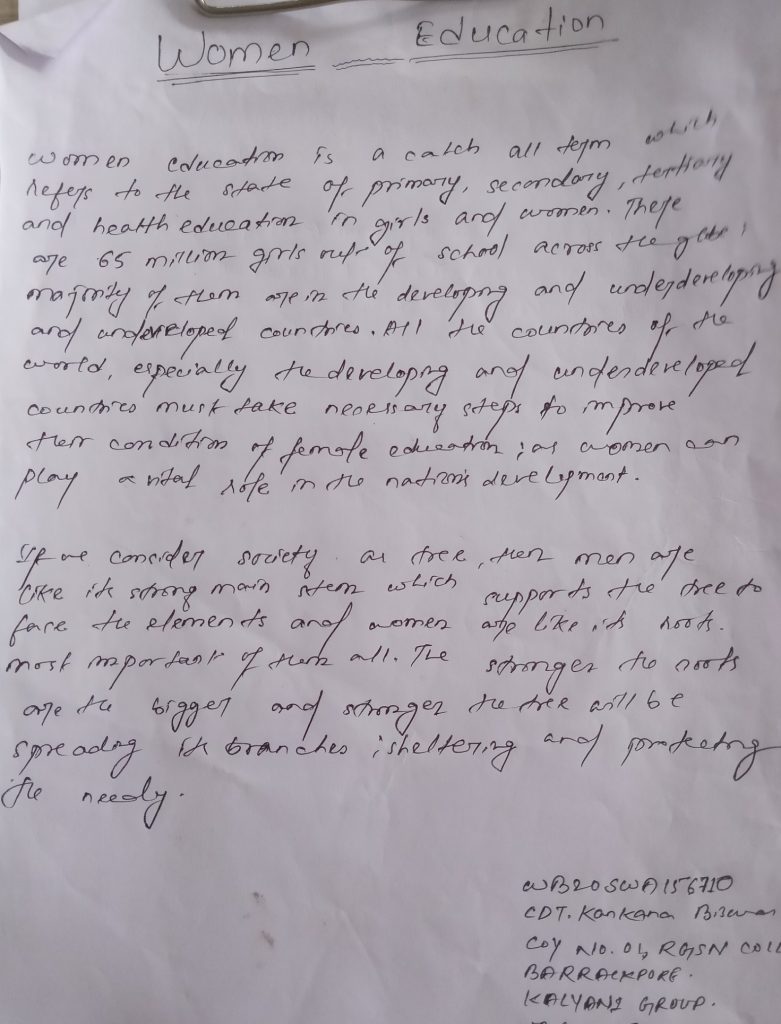 Women Education
women education is a catch all term which
refers to the state of primary, secondary, tertiary
and health education in girls and women. There
are 65 million girls out of school across the globe;
majority of them are in the developing and underdeveloping
and underdeveloped countries. All the countries of the
world, especially the developing and underdeveloped
countries must take necessary steps to improve
their condition of female education; as women can
play a vital role in the nation's development.
If we consider society as tree, then men are
like its strong main stem which supports the tree to
face the elements and women are like its roots.
most important of them all. The stronger the roots
are the bigger and stronger the tree will be
spreading its branches; sheltering and protecting
the needy.
WB20SWA156710
CDT. Kankana Biswas
Coy No. 01, RGSN COLL
BARRACKPORE.
KALYANI GROUP.